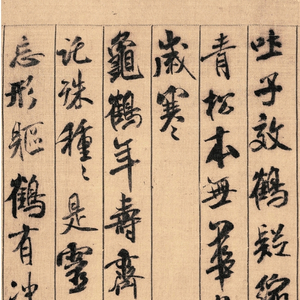 吐子效鶴疑縮
青松本無華
歲寒
龜鶴年壽齊
託殊種〻是靈
忘形軀鶴有沖